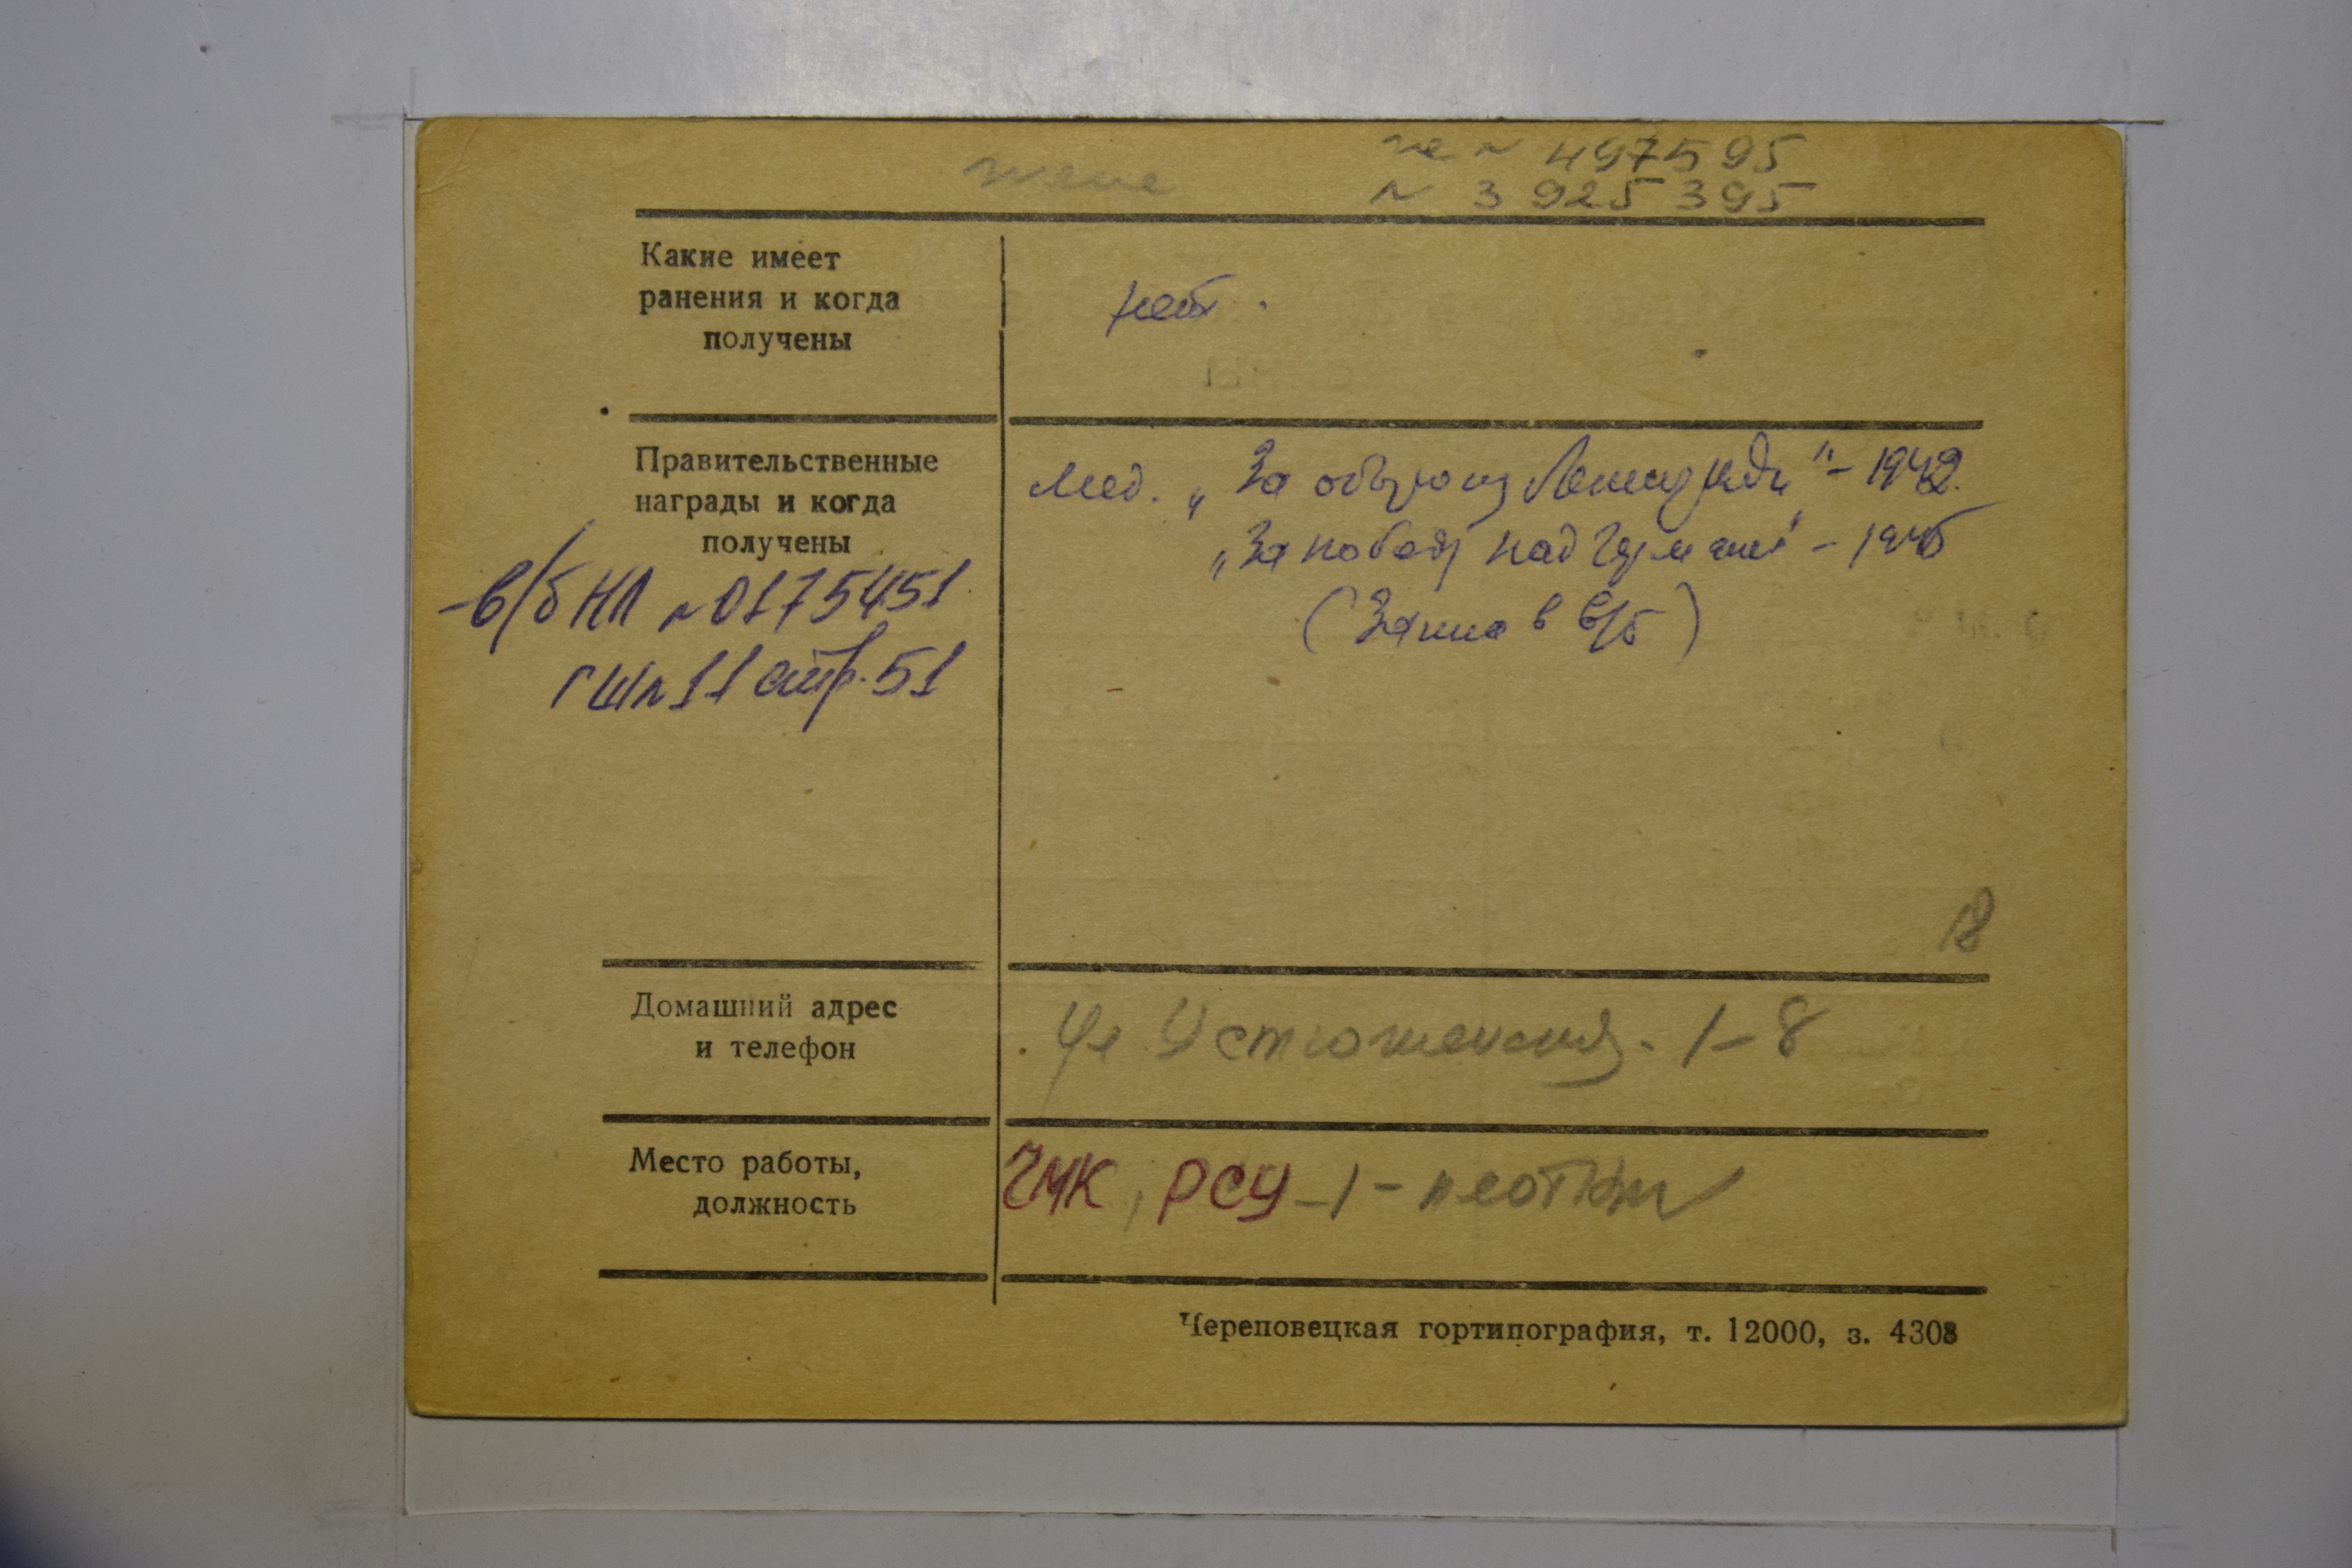 жене
№ 497595
№ 3925395
Какие имеет
ранения и когда
получены
нет.
Правительственные
награды и когда
получены
Мед. „За оборону Ленинграда" – 1942.
„За победу над Германией" – 1945
(Запись в в/б)
-в/б НЛ №0175451
ГШ №11 стр. 51
18
Домашний адрес
и телефон
Ул Устюженская. 1–8
Место работы,
должность
ЧМК, РСУ-1 – плотник
Череповецкая гортипография, т. 12000, з. 4308